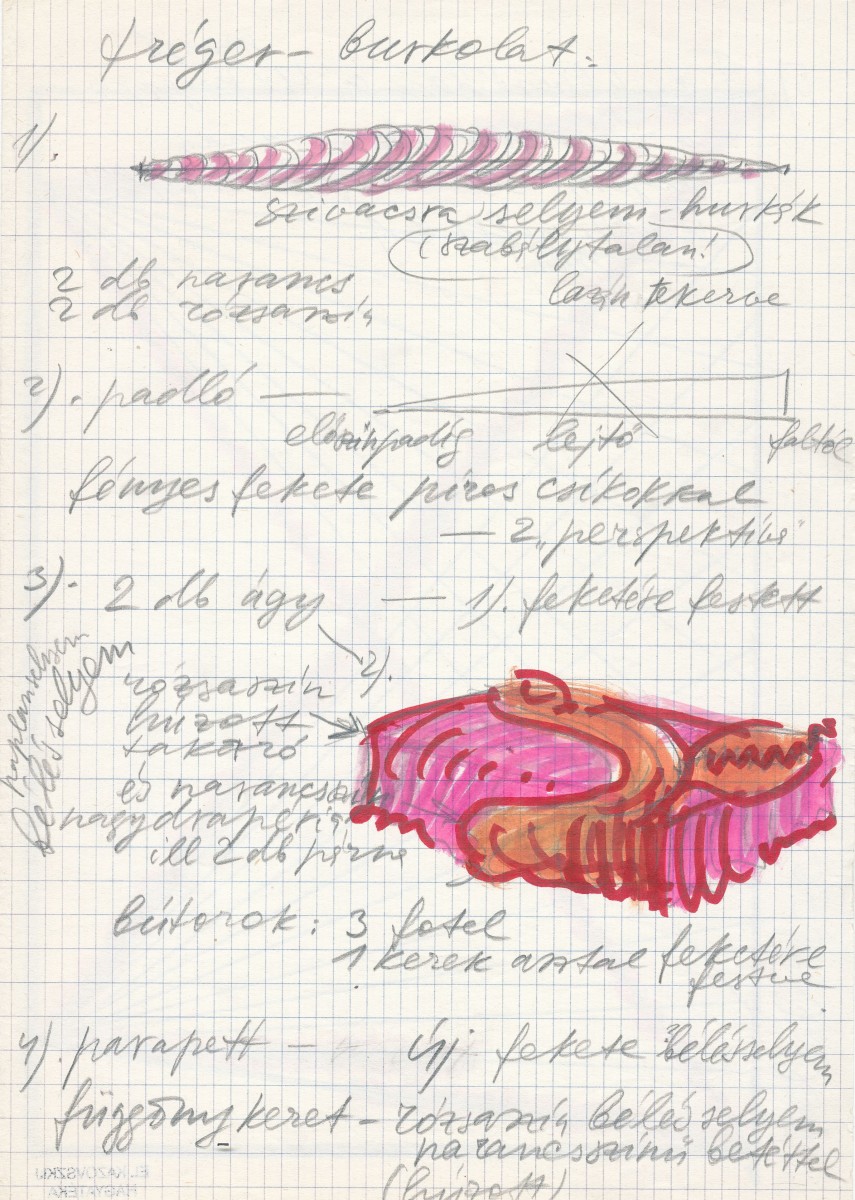 tréger - burkolat.
1).
szivacsra selyem - hurkák
(szabálytalan!
lazán tekerve
2 db narancs
2 db rózsaszín
2). padló —
előszínpadig lejtő faltól
fényes fekete piros csíkokkal
— 2 „perspektíva"
3). 2 db ágy — 1). feketére festett
2).
paplanselyem
bélésselyem
rózsaszín
húzott
takaró
és narancsszín
nagydrapéria
ill 2 db párna
bútorok: 3 fotel
1 kerek asztal feketére
festve
4). parapett — új fekete bélésselyem
függönykeret - rózsaszín bélésselyem
narancsszínű betéttel
(húzott)
EL KAZOVSZKIJ
HAGYATÉKA